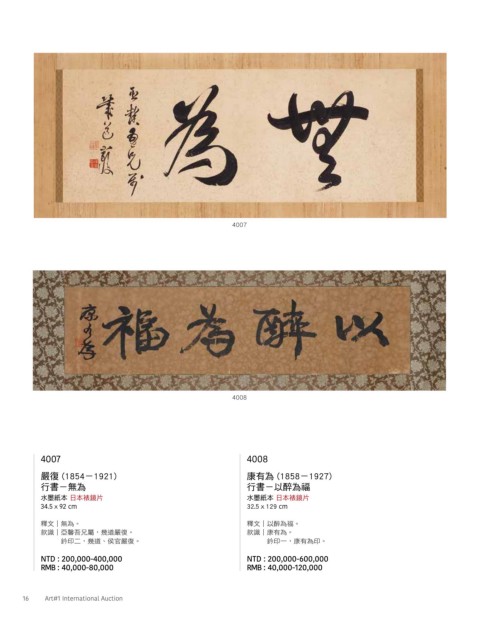 無為
亞馨吾兄屬
幾道嚴復
4007
以醉為福
康有為
4008
4007
嚴復（1854－1921）
行書－無為
水墨紙本 日本裱鏡片
34.5 x 92 cm
釋文｜無為。
款識｜亞馨吾兄屬，幾道嚴復。
鈐印二，幾道、侯官嚴復。
NTD : 200,000-400,000
RMB : 40,000-80,000
4008
康有為（1858－1927）
行書－以醉為福
水墨紙本 日本裱鏡片
32.5 x 129 cm
釋文｜以醉為福。
款識｜康有為。
鈐印一，康有為印。
NTD : 200,000-600,000
RMB : 40,000-120,000
16 Art#1 International Auction